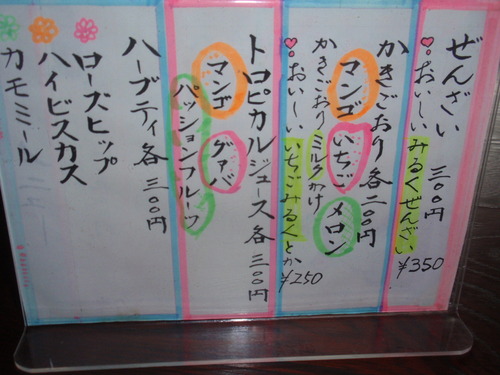 ぜんざい 三〇〇円
♥おいしいみるくぜんざい ¥350
かきごおり各二〇〇円
マンゴ いちご メロン
かきごおりミルクかけ
♥おいしいいちごみるくとか ¥250
トロピカルジュース各三〇〇円
マンゴ グァバ
パッションフルーツ
ハーブティ各 三〇〇円
ローズヒップ
ハイビスカス
カモミール